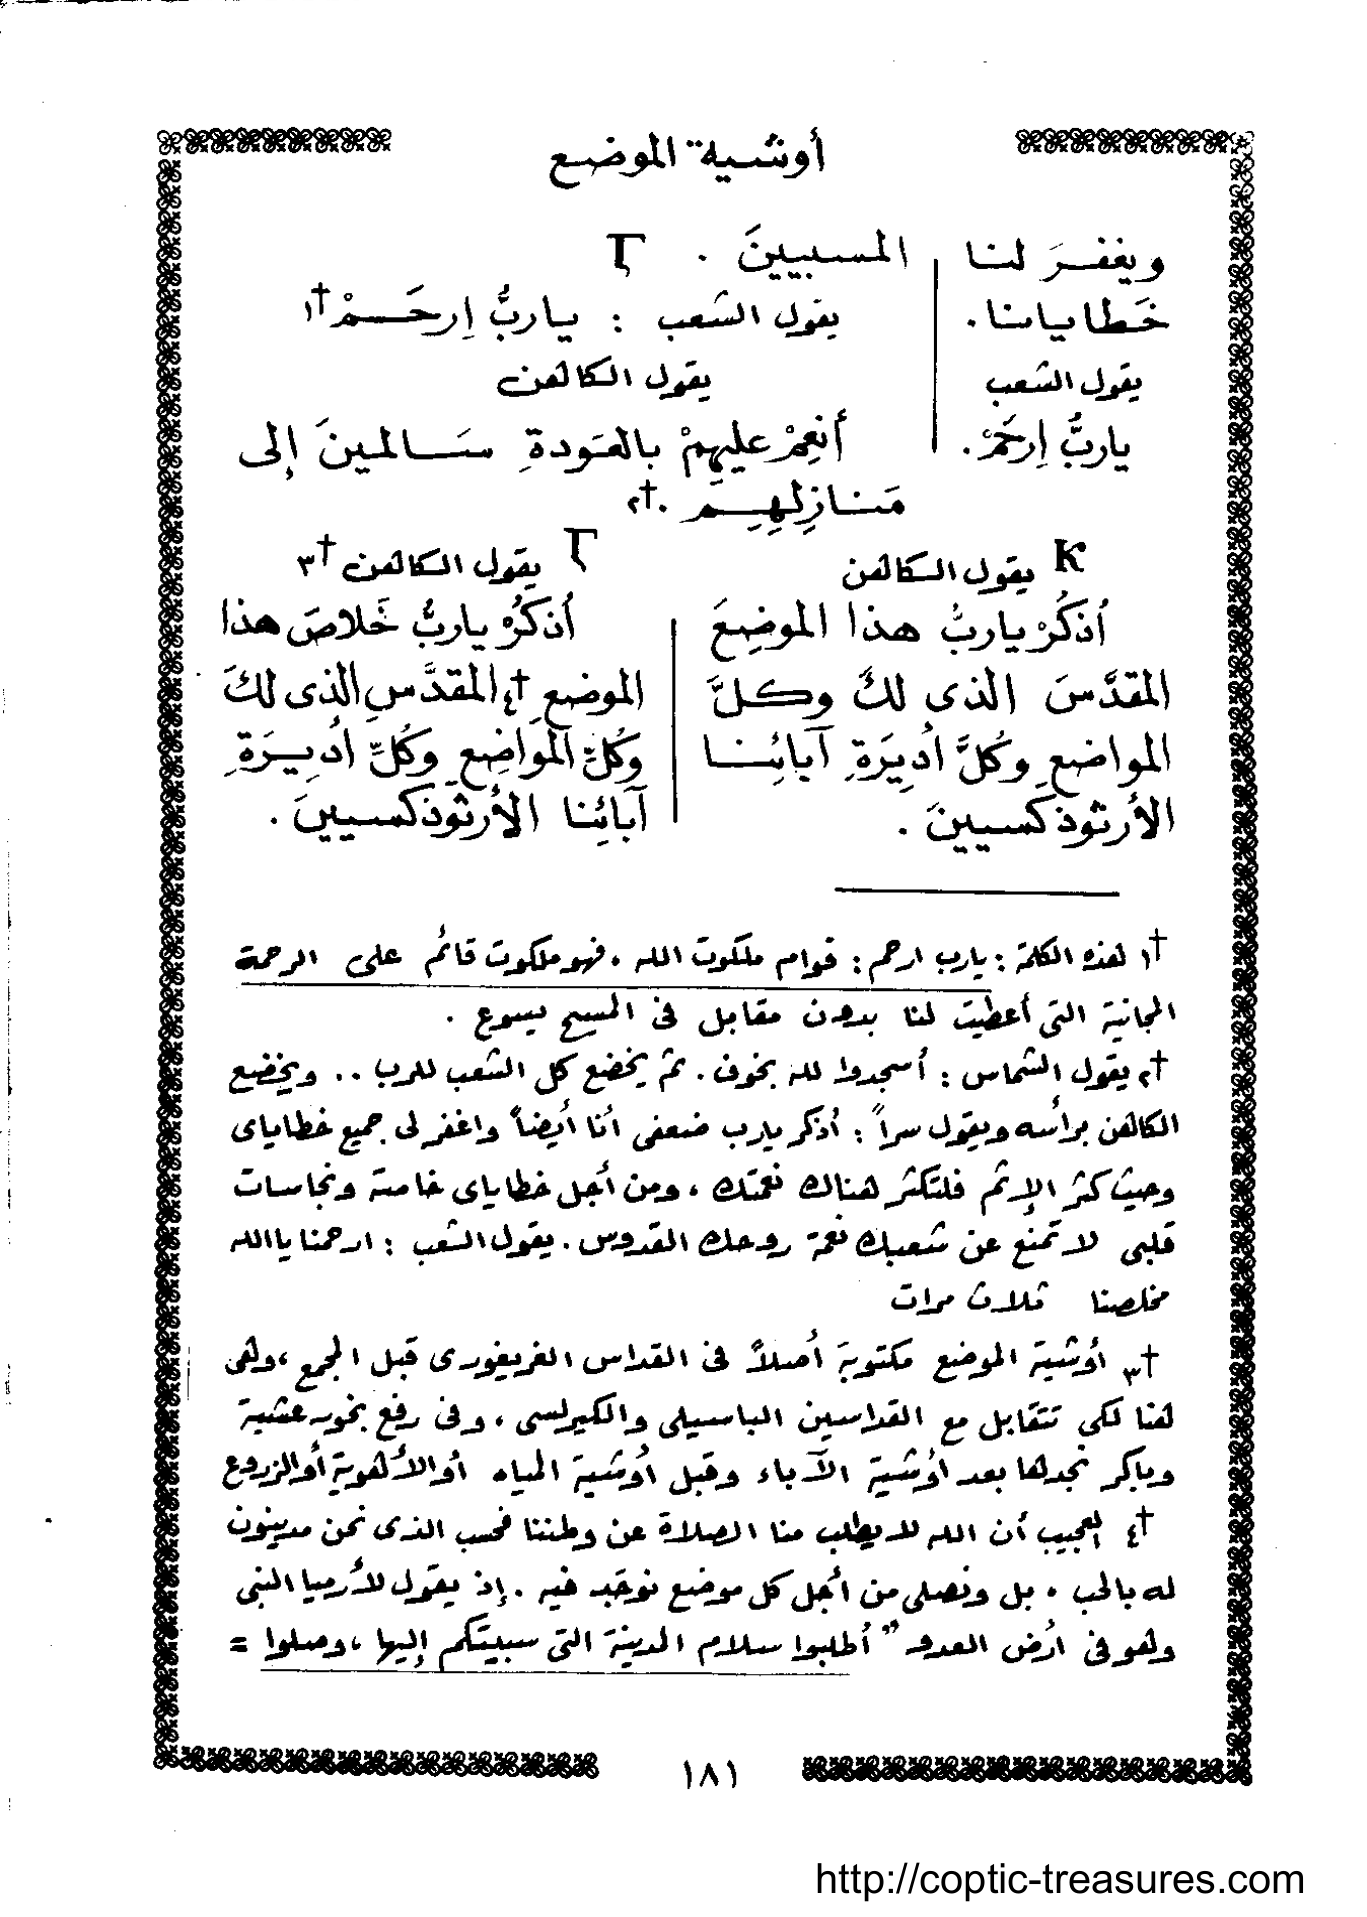 أوشية الموضع
ويغفرَ لنا
خَطايانا.
يقول الشعب
ياربُّ اِرحَمْ.
المسبيينَ . Γ
يقول الشعب : ياربُّ اِرحَمْ †١
يقول الكاهن
أنعِمْ عليهِمْ بالعَودةِ سَالمينَ إلى
مَنازِلهِم .†٢
Ⲕ يقول الكاهن
أُذكُرْ ياربُّ هذا الموضِعَ
المقدَّسَ الذى لكَ وكلَّ
المواضعِ وكُلَّ أديِرَةِ آبائِنا
الأرثوذكسيينَ .
Γ يقول الكاهن †٣
أُذكُرْ ياربُّ خَلاصَ هذا
الموضعِ †٤ المقدَّسِ الذى لكَ
وكُلِّ المَواضِعِ وكُلِّ أديِرَةِ
آبائِنا الأرثوذكسيينَ .
†١ هذه الكلمة : يارب ارحم : قوام ملكوت الله ، فهو ملكوت قائم على الرحمة
المجانية التى أعطيت لنا بدون مقابل فى المسيح يسوع .
†٢ يقول الشماس : أسجدوا لله بخوف . ثم يخضع كل الشعب للرب .. ويخضع
الكاهن برأسه ويقول سراً : أذكر يارب ضعفى أنا أيضاً واغفر لى جميع خطاياى
وحيث كثر الإثم فلتكثر هناك نعمتك ، ومن أجل خطاياى خاصة ونجاسات
قلبى لا تمنع عن شعبك نعمة روحك القدوس . يقول الشعب : ارحمنا يا الله
مخلصنا ثلاث مرات
†٣ أوشية الموضع مكتوبة أصلاً فى القداس الغريغورى قبل المجمع ، وهى
هنا لكى تتقابل مع القداسين الباسيلى والكيرلسى ، وفى رفع بخور عشية
وباكر نجدها بعد أوشية الآباء وقبل أوشية المياه أو الأهوية أو الزروع
†٤ العجيب أن الله لا يطلب منا الصلاة عن وطننا فحسب الذى نحن مدينون
له بالحب ، بل ونصلى من أجل كل موضع نوجَد فيه . إذ يقول لأرميا النبى
وهو فى أرض العدو " أطلبوا سلام المدينة التى سبيتكم إليها ، وصلوا =
١٨١
http://coptic-treasures.com